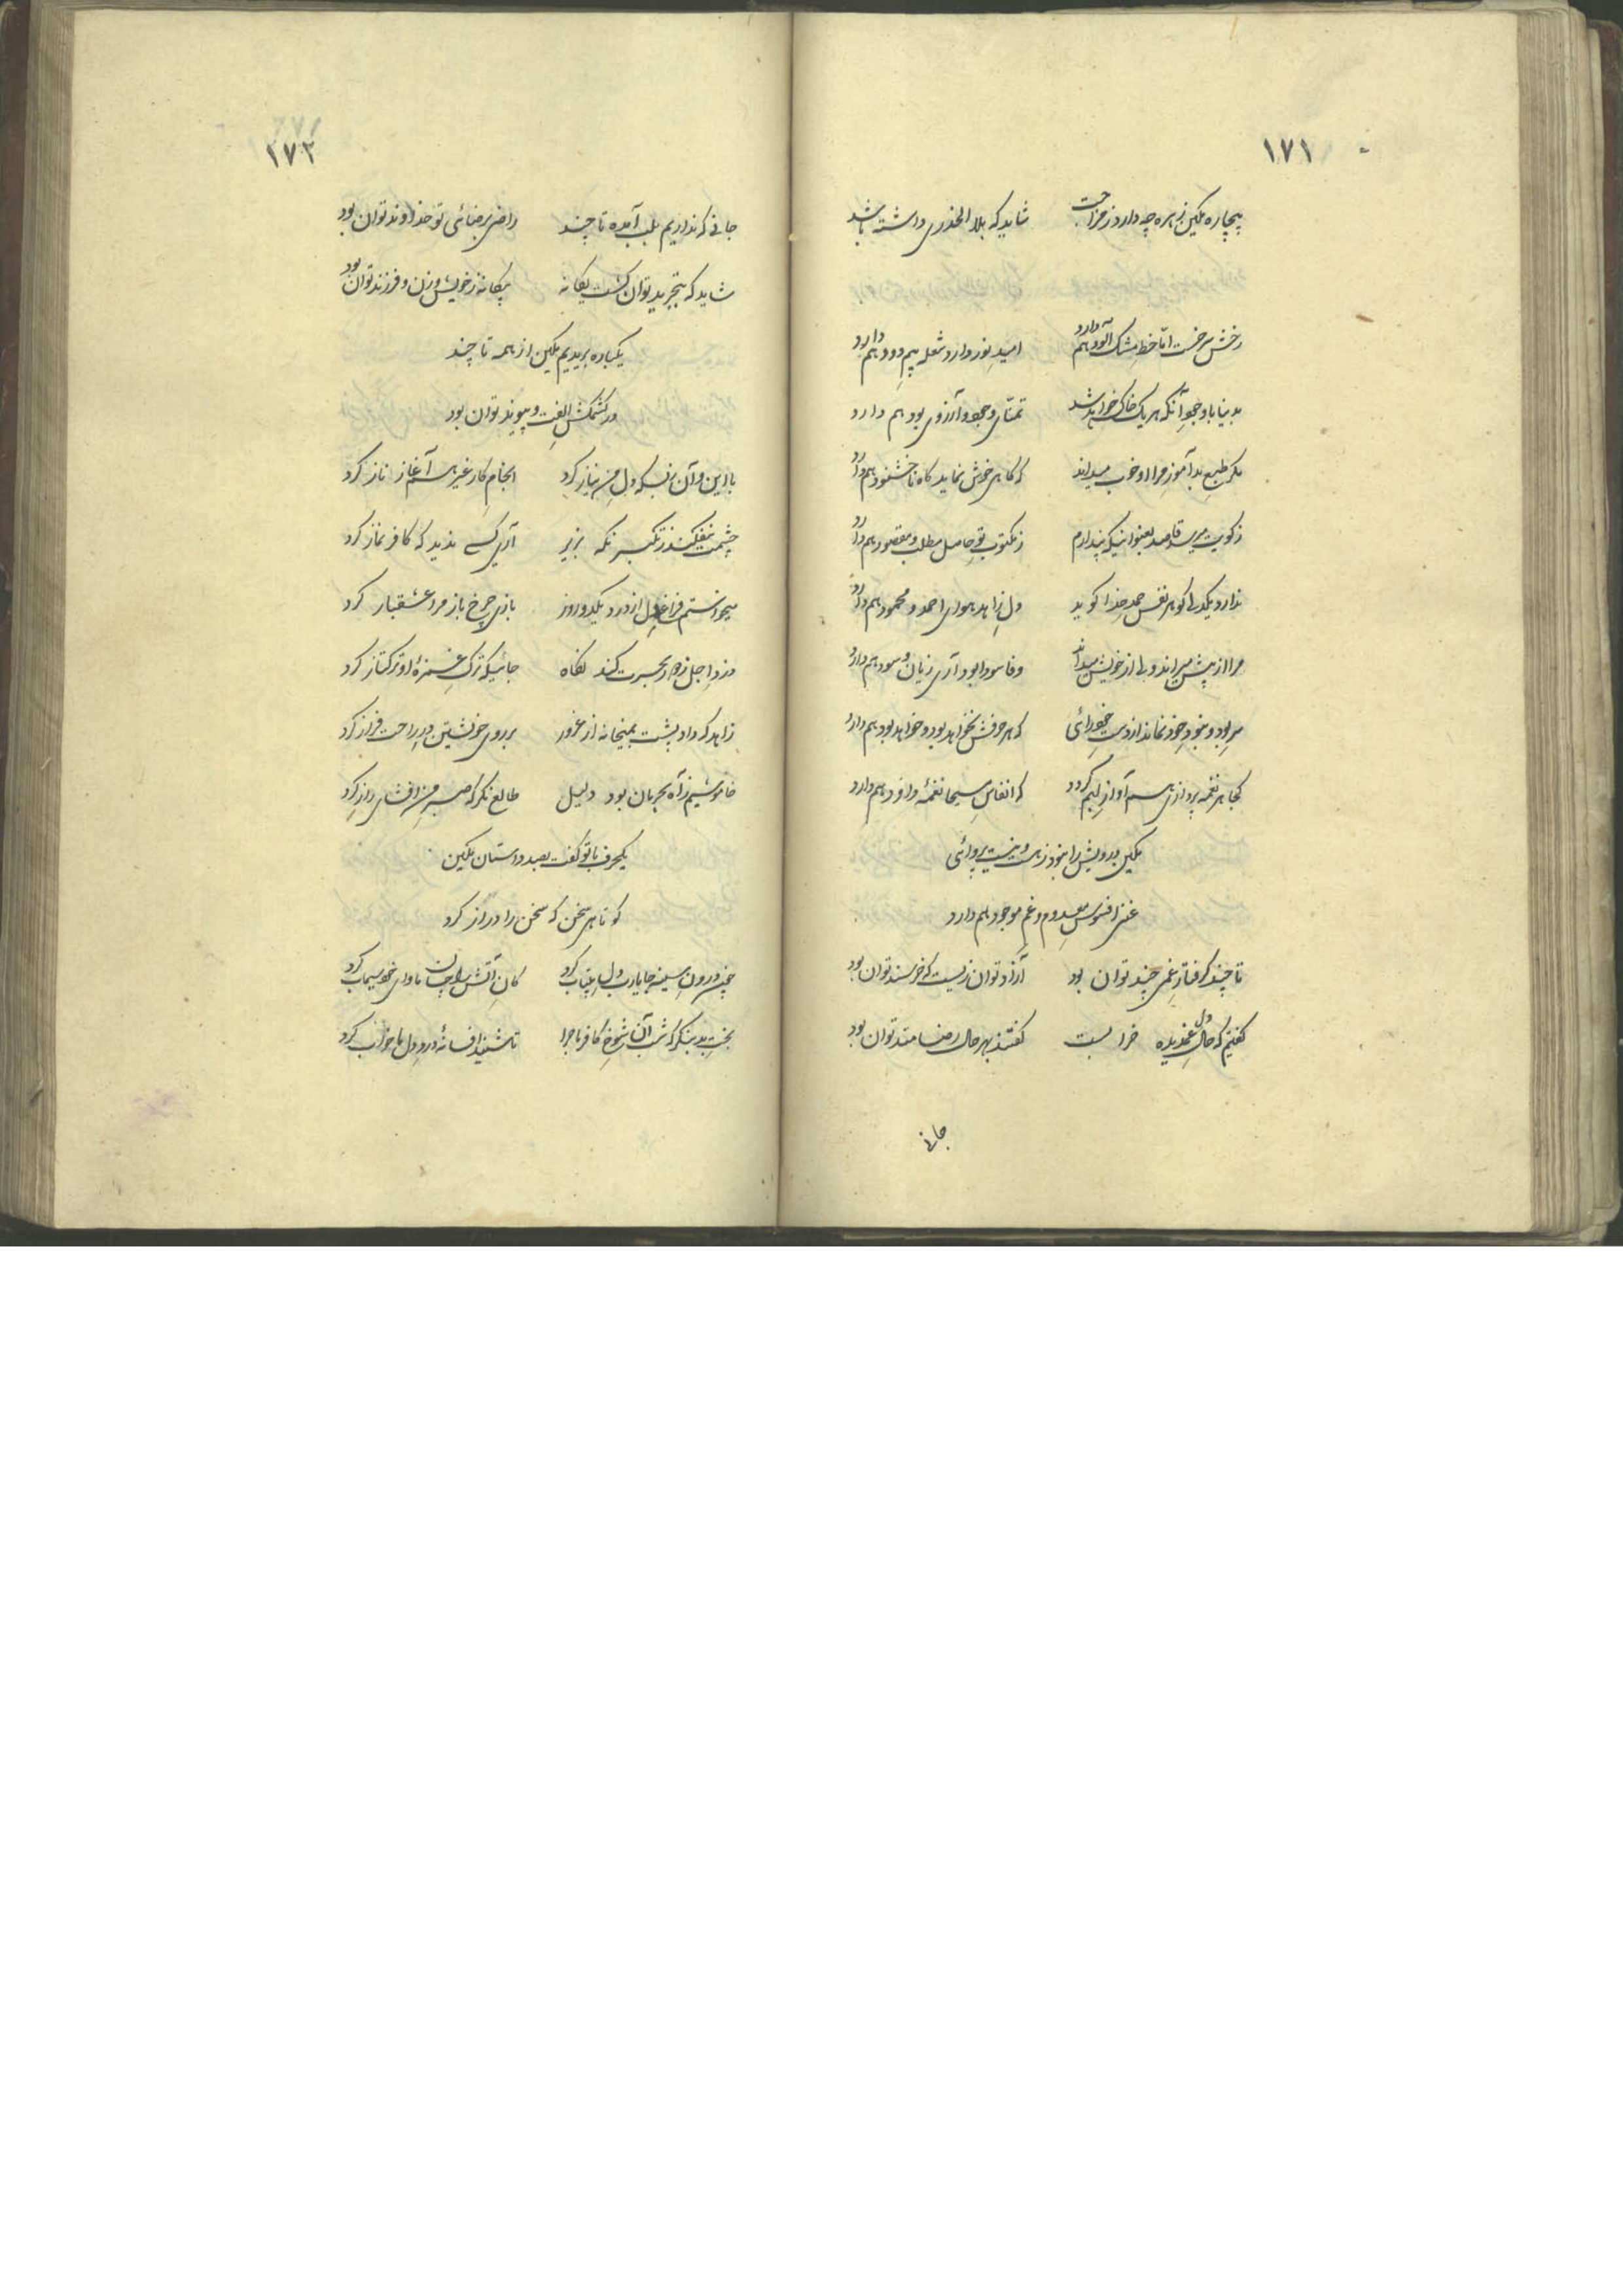 ۱۷۱
بیچاره مکین زهره چه دارد ز مزاحت شاید که بلا الحذری داشته باشد
رخش سرخست اما خط مشک آلود هم دارد امید نور دارد شعله بیم دود هم دارد
بدنیا با وجود آنکه هر یک خاک خواهد شد تمنای وجود و آرزوی بود هم دارد
مکر طبع بدآموز مرا او خوب میداند که کاهی خوش نماید کاه ناخشنود هم دارد
ز کویت میرسد قاصد پندارم ز مکتوب تو حاصل مطلب و مقصود هم دارد
ندارد یکدلی کو هر نفس حمد خدا کوید دل زاهد هوای احمد و محمود هم دارد
مرا از پیش میراند ولی از خویش میداند وفا سودا بود آری زیان و سود هم دارد
که هر حرفش نخواهد بود و خواهد بود هم دارد
کجا هر نغمه پردازی هم آواز کلیم کردد که انفاس مسیحا نغمه داود هم دارد
مکین درویش را نبود ز هست و نیست پروائی
غنی افسوس معدوم و غم موجود هم دارد
تا چند کرفتار غمی چند توان بود آزاد توان زیست که خرسند توان بود
کفتیم که حال دل غمدیده خرابست کفتند بهر حال رضامند توان بود
جانی
۱۷۲
جانی که نداریم بلب آمده تا چند راضی برضائی تو خداوند توان بود
شاید که بتجرید توان کشت یکانه بیکانه ز خویش و زن و فرزند توان بود
یکباره بریدیم مکین از همه تا چند
در کشمکش الفت و پیوند توان بود
با این و آن بسکه دل من نیاز کرد انجام کار غیر هم آغاز ناز کرد
چشمت نیفکند ز تکبر نکه بزیر آری کسی ندید که کافر نماز کرد
میخواستم فراغ دل از درد یکدو روز بازی چرخ باز مرا عشقباز کرد
دزد اجل ز دور بحسرت کند نکاه جائیکه ترک غمزه او ترکتاز کرد
زاهد که داد پشت بمیخانه از غرور بر روی خویشتن در راحت فراز کرد
خاموشیم ز آه بحرمان بود دلیل طالع نکر که صبر من افشای راز کرد
یکحرف با تو کفت بصد داستان مکین
کوتاهی سخن که سخن را دراز کرد
چون درون سینه جا یارب دل بیتاب کرد کان آتش را چسان ماوای خود سیماب کرد
بخت بد بنکر که شب آن شوخ کافر ماجرا تا شنید افسانه درد دل ما خواب کرد